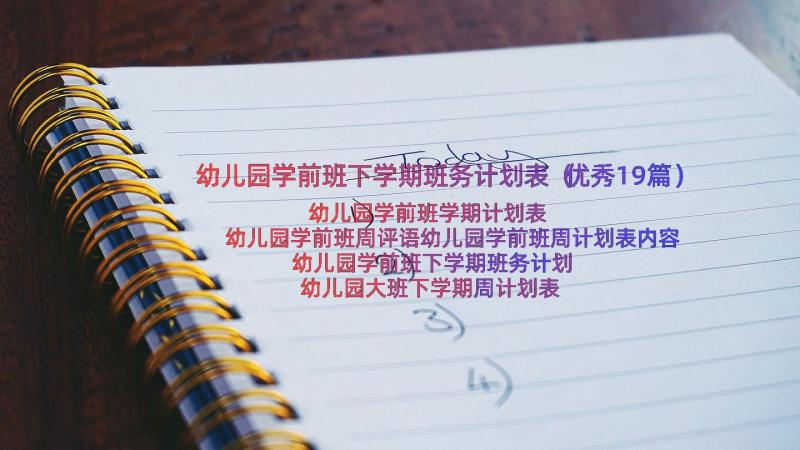 Today
幼儿园学前班下学期班务计划表（优秀19篇）
1)
幼儿园学前班学期计划表
幼儿园学前班周评语幼儿园学前班周计划表内容
2)
幼儿园学前班下学期班务计划
幼儿园大班下学期周计划表
3)
4)